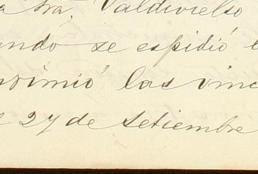 Sra. Valdivielso
ando se espidió
imió las vinc
27 de Setiembre